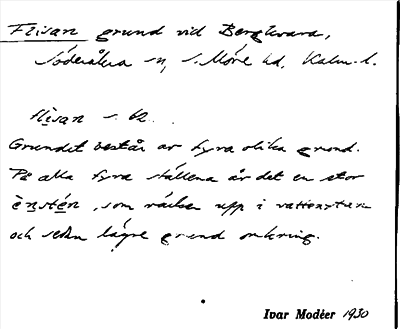 Flisan grund vid Bergkvara,
Söderåkra sn, S. Möre hd, Kalm. l.
flisan
Grundet består av fyra olika grund.
På alla fyra ställena är det en stor
ènstén, som räcker upp i vattenytan
och sedan lägre grund omkring.
Ivar Modéer 1930